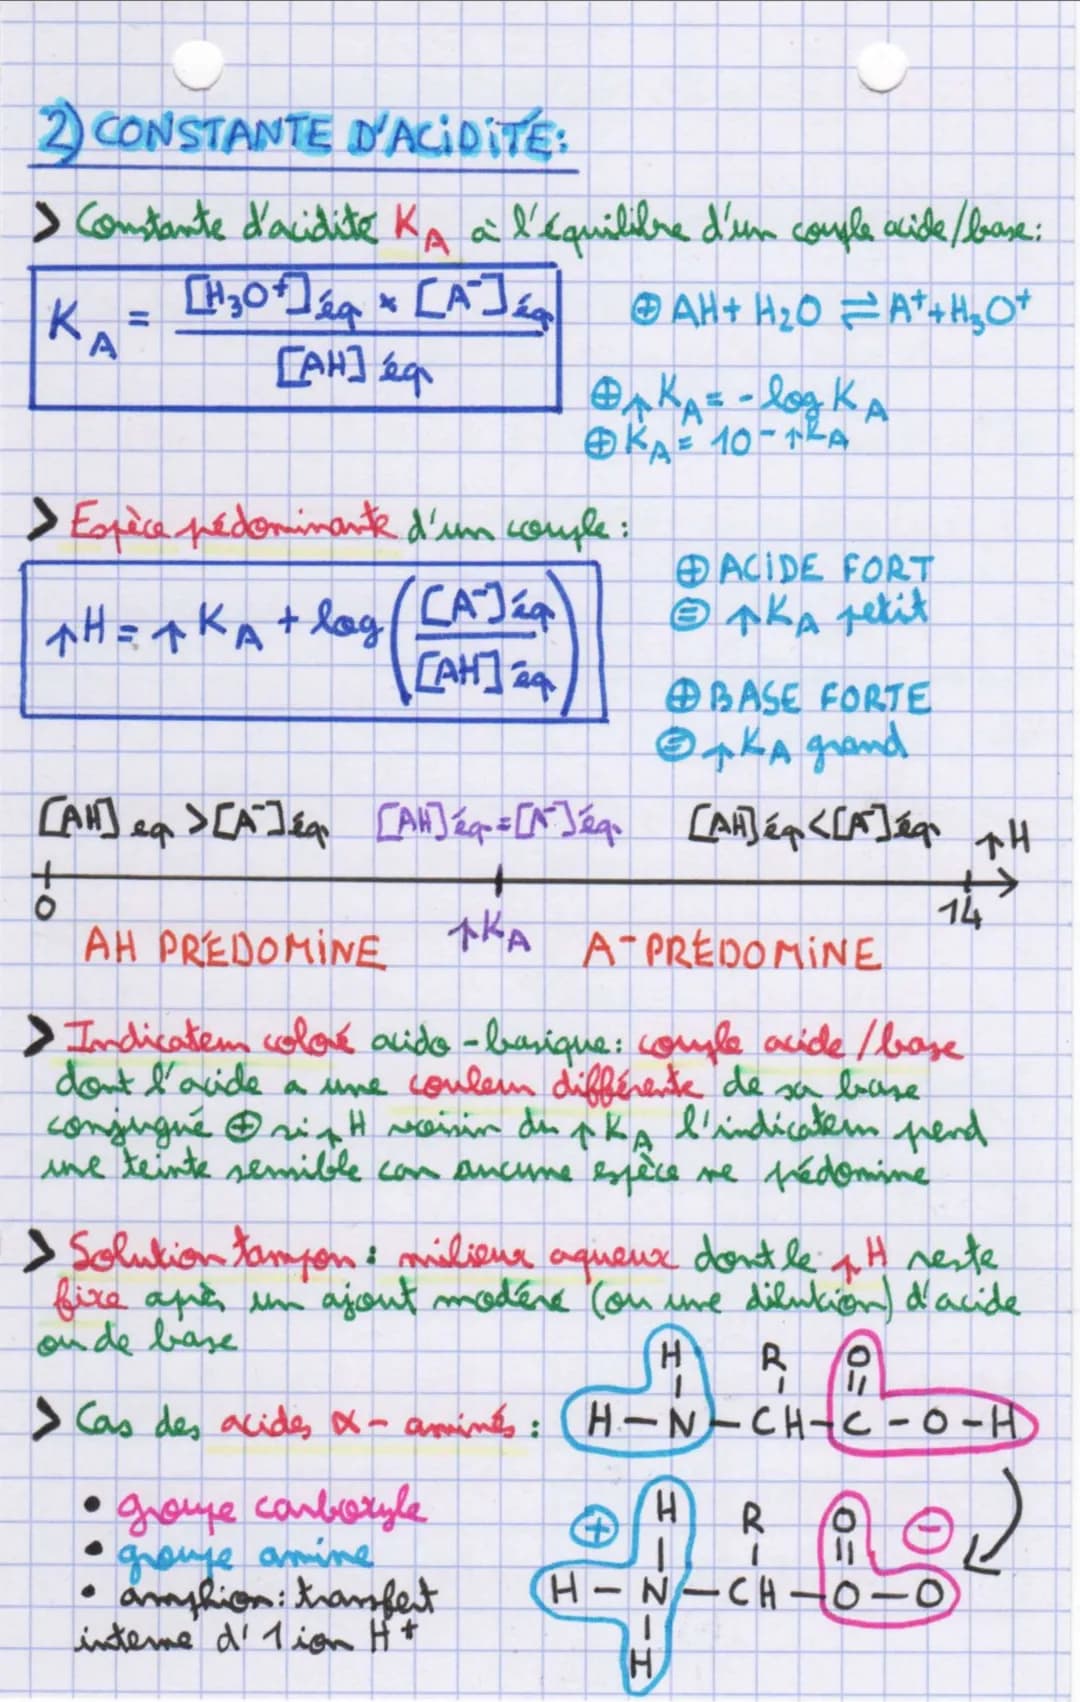 2) CONSTANTE D'ACIDITÉ:
> Constante d'acidité KA à l'équilibre d'un couple acide/base:
KA = [H3O+]éq × [A-]éq / [AH]éq
⊕ AH + H2O ⇌ A+ + H3O+
⊕ pKA = - log KA
⊕ KA = 10 - pKA
> Espèce prédominante d'un couple :
pH = pKA + log ([A-]éq / [AH]éq)
⊕ ACIDE FORT
⊜ pKA petit
⊕ BASE FORTE
⊜ pKA grand
[AH]eq > [A-]éq [AH]éq = [A-]éq [AH]éq < [A-]éq pH
0 pKA 14
AH PRÉDOMINE A- PRÉDOMINE
> Indicateur coloré acido-basique: couple acide/base
dont l'acide a une couleur différente de sa base
conjugué ⊕ si pH voisin du pKA l'indicateur prend
une teinte sensible car aucune espèce ne prédomine
> Solution tampon : milieux aqueux dont le pH reste
fixe après un ajout modéré (ou une dilution) d'acide
ou de base
> Cas des acides α-aminés :
H R O
H - N - CH - C - O - H
• groupe carboxyle
• groupe amine
• amphion: transfert
interne d' 1 ion H+
+ H R O -
H - N - CH - O - O
H